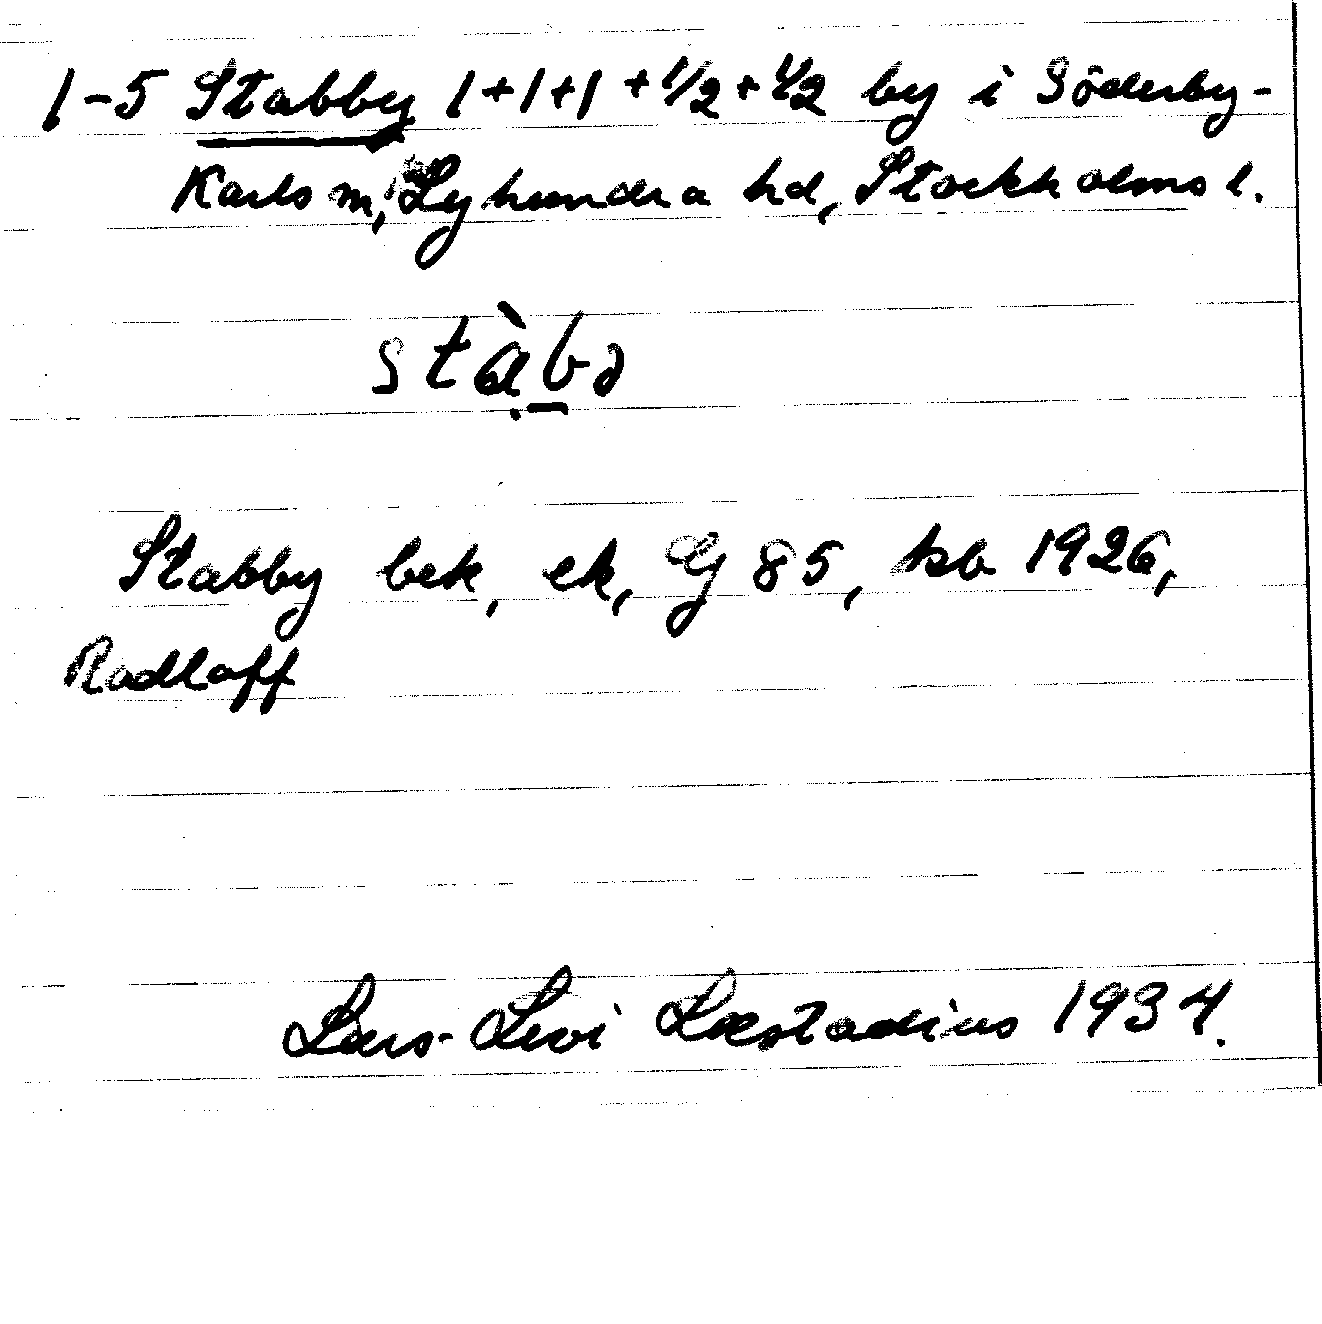 1-5 Stabby 1+1+1+1/2+1/2 by i Söderby-
Karls sn, Lyhundra hd, Stockholms l.
stàbə
Stabby bek, ek, Gj 85, kb 1926,
Radloff
Lars-Levi Læstadius 1934.